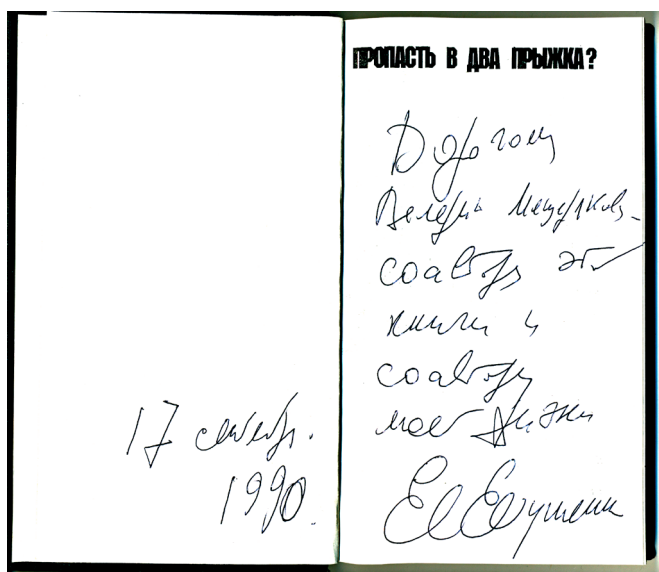 17 сентябр.
1990.
ПРОПАСТЬ В ДВА ПРЫЖКА?
Дорогому
Валерию
соавтору этой
книги и
соавтору
моей жизни
Е Евтушенко